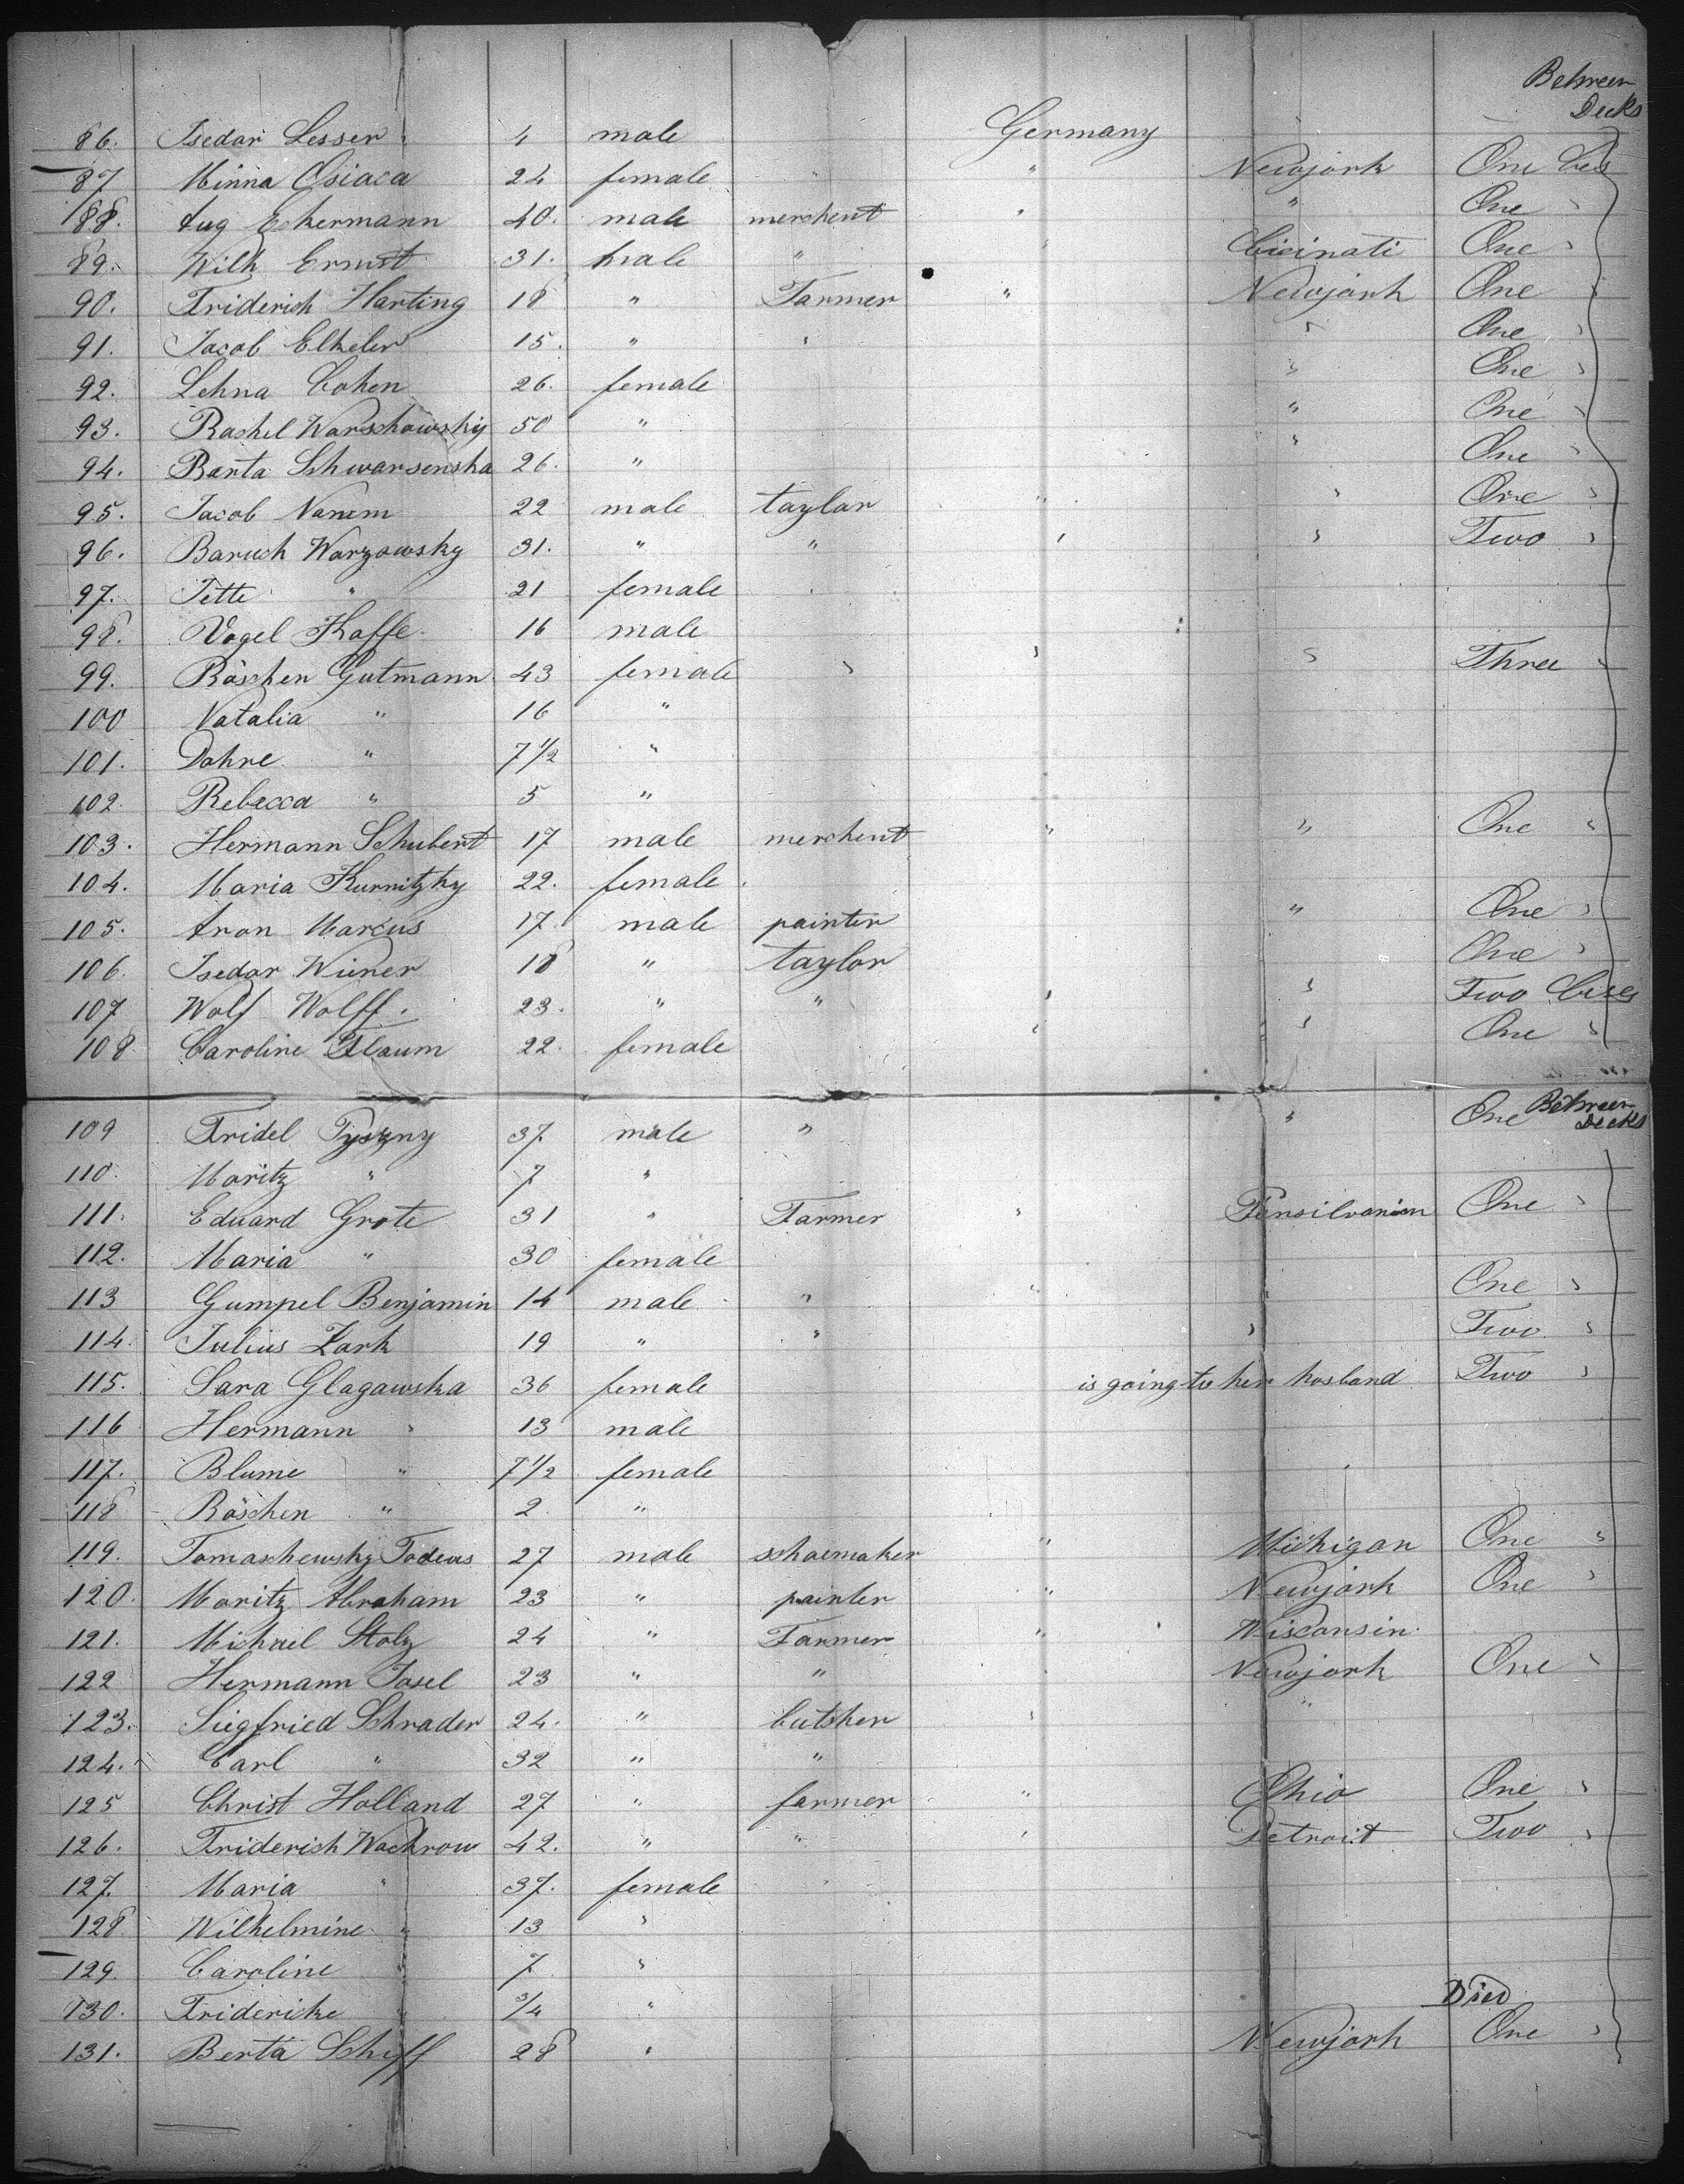 Between
Decks
86. Isedor Lesser 4 male Germany
87 Minna Osiaca 24 female " " Newjork One
88. Aug Eckermann 40. male merchent " " One "
89. Wilh Ernst 31. male " " Cicinati One "
90. Friderich Harting 18 " Farmer " Newjork One "
91. Jacob Elkeler 15. " " " One "
92. Lehna Cohen 26. female " One "
93. Rachel Warschowsky 50 " " One "
94. Barta Schwarsenska 26. " " One "
95. Jacob Nanem 22 male taylor " " One "
96. Baruch Warzowsky 31. " " " " Two "
97. Tette " 21 female
98. Vogel Kaffe 16 male
99. Röschen Gutmann 43 female " " " Three "
100 Natalia " 16 "
101. Dohre " 7 1/2 "
102. Rebecca " 5 "
103. Hermann Schubert 17 male merchent " " One "
104. Maria Kurnitzky 22. female
105. Aron Marcus 17. male painter " One "
106. Isedor Wiener 18 " taylor One "
107 Wolf Wolff. 23. " " " " Two
108 Caroline 22. female " " One "
109 Fridel 37. male " " One Between
Decks
110. Moritz " 7 "
111. Eduard Grote 31 " Farmer " Pensilvanien One "
112. Maria " 30 female
113 Gumpel Benjamin 14 male " " " One "
114. Julius Zark 19 " " " Two "
115. Sara Glagawska 36 female is going to her hosband Two "
116 Hermann " 13 male
117. Blume " 7 1/2 female
118 Röschen " 2. "
119. Tomaschewsky Todeus 27 male schoemaker " Michigan One "
120. Moritz Abraham 23 " painter " Newjork One "
121. Michael Stolz 24 " Farmer " Wisconsin
122 Hermann Josel 23 " " " Newjork One "
123. Siegfried Schrader 24. " butcher " "
124. Carl " 32 " "
125 Christ Holland 27 " farmer " Ohio One "
126. Friderich Wackrow 42. " " " Detroit Two "
127. Maria " 37. female
128 Wilhelmine " 13 "
129. Caroline " 7 "
130. Fridericke " 3/4 " Died
131. Berta Schiff 28 " Newjork One "